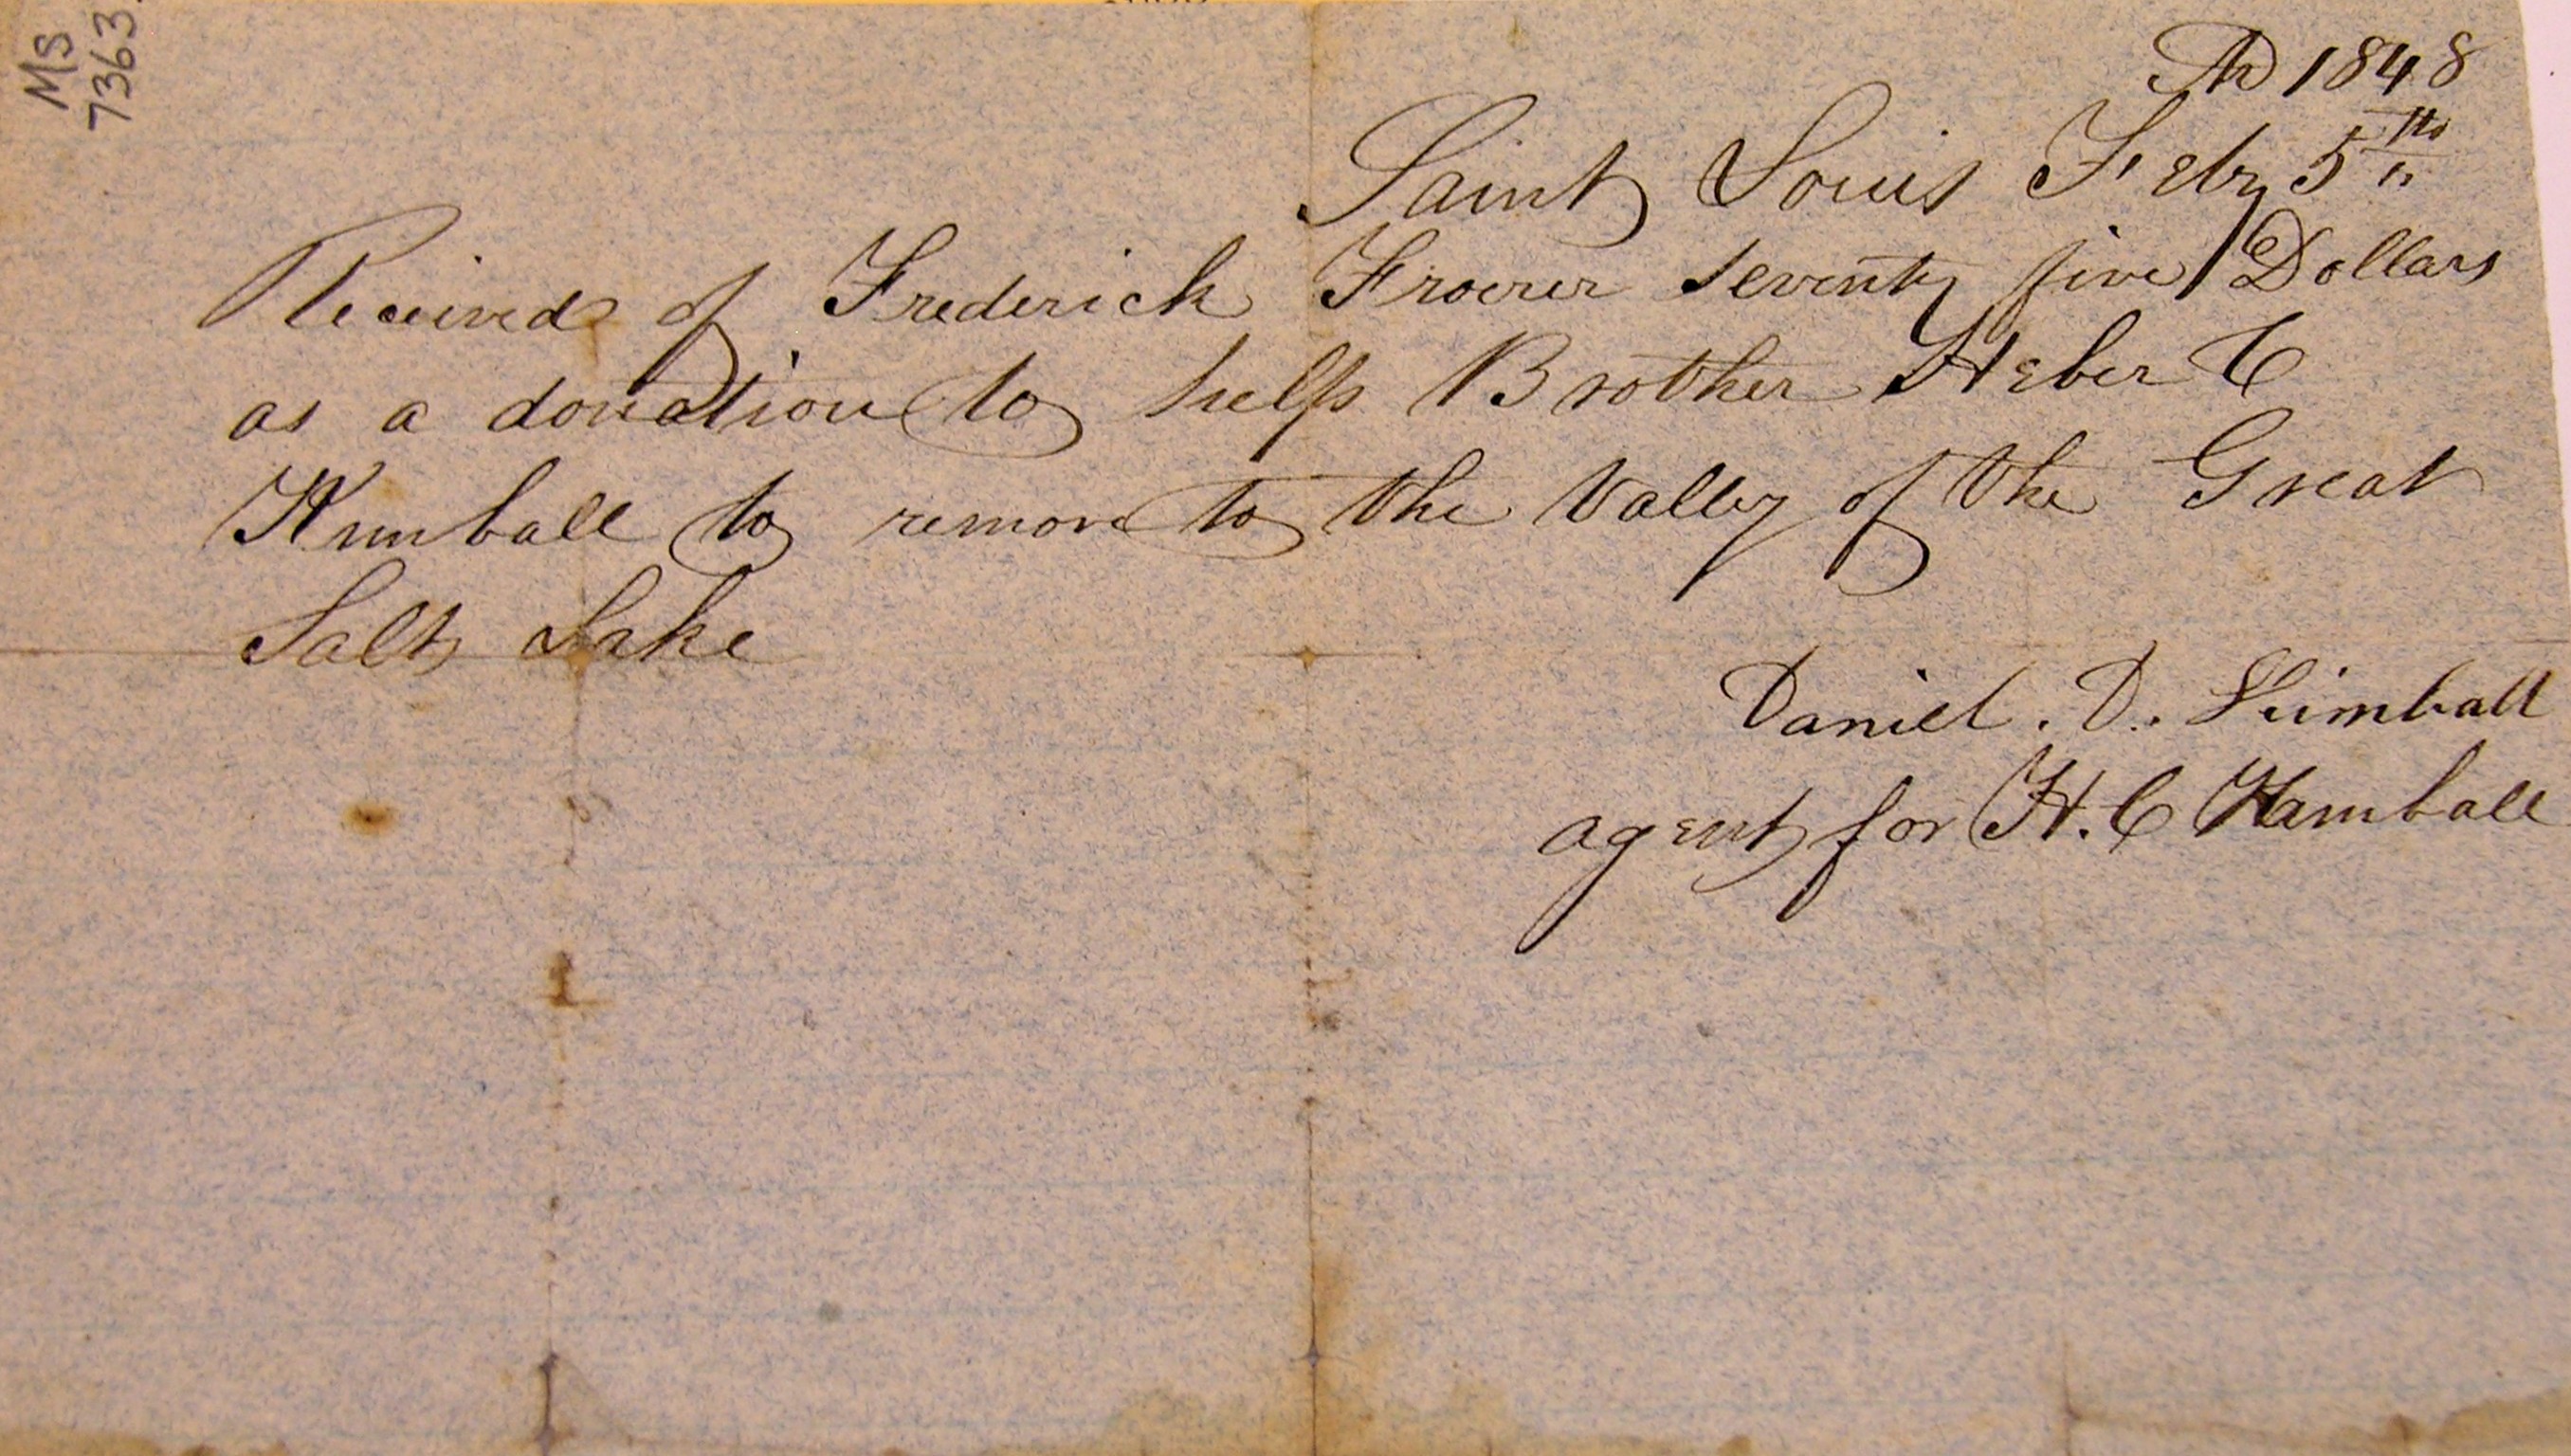 MS
7363
AD 1848
Saint Louis Feby 5th
Received of Frederick Froerer seventy five Dollars
as a donation to help Brother Heber C
Kimball to remove to the Valley of the Great
Salt Lake
Daniel. D. Kimball
agent for H. C Kamball